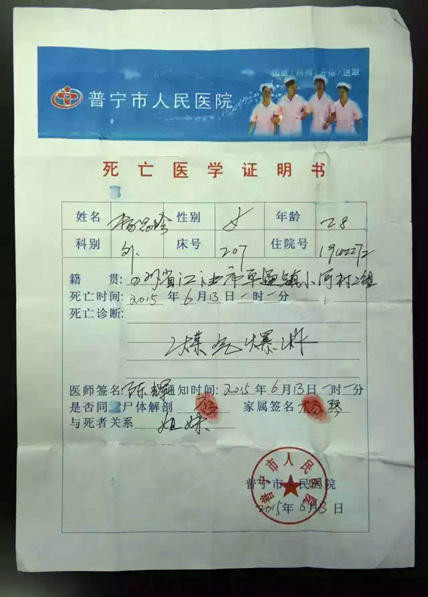 普宁市人民医院
死亡医学证明书
姓名 性别 女 年龄 28
科别 外 床号 207 住院号
籍 贯: 四川省江油市 镇小河村2组
死亡时间: 2015年6月13日一时一分
死亡诊断:
煤气爆炸
医师签名: 陈辉 通知时间: 2015年6月13日一时一分
是否同 尸体解剖 家属签名
与死者关系 姐妹
普宁市人民医院
普宁市 民医院
2015年6月13日